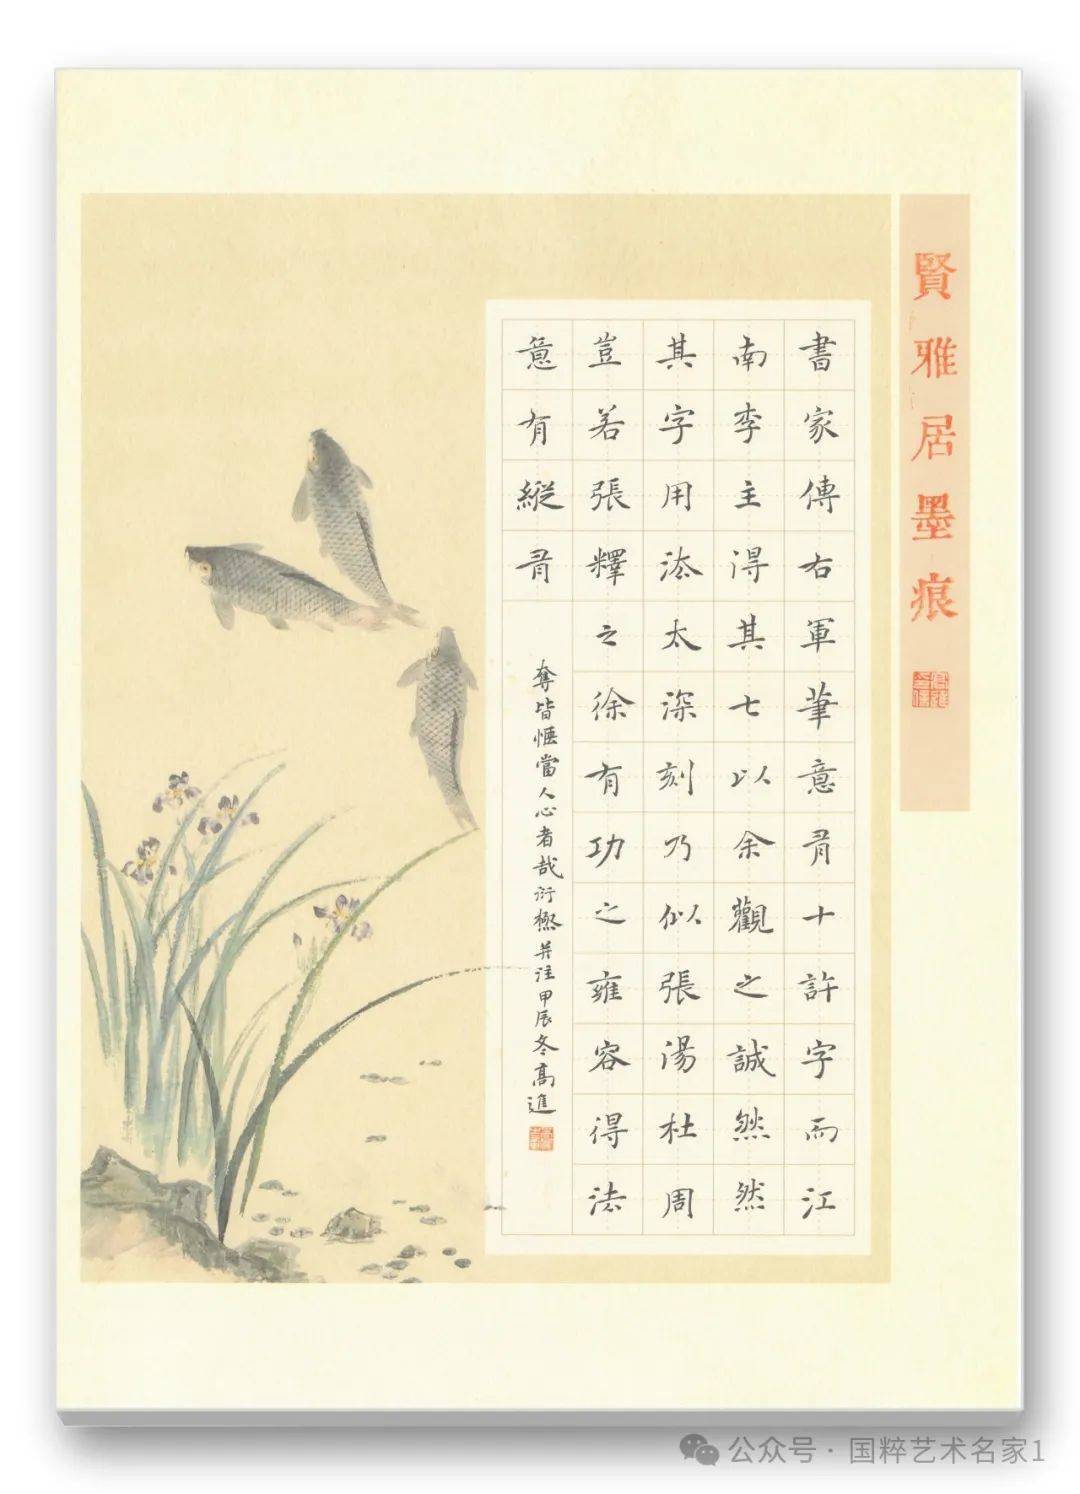 賢雅居墨痕
書家傳右軍筆意十許字而江
南李主得其七以余觀之誠然然
其字用法太深刻乃似張湯杜周
豈若張釋之徐有功之雍容得法
意有縱
奪皆愜當人心者哉衍極并注甲辰冬高進
公众号·国粹艺术名家1